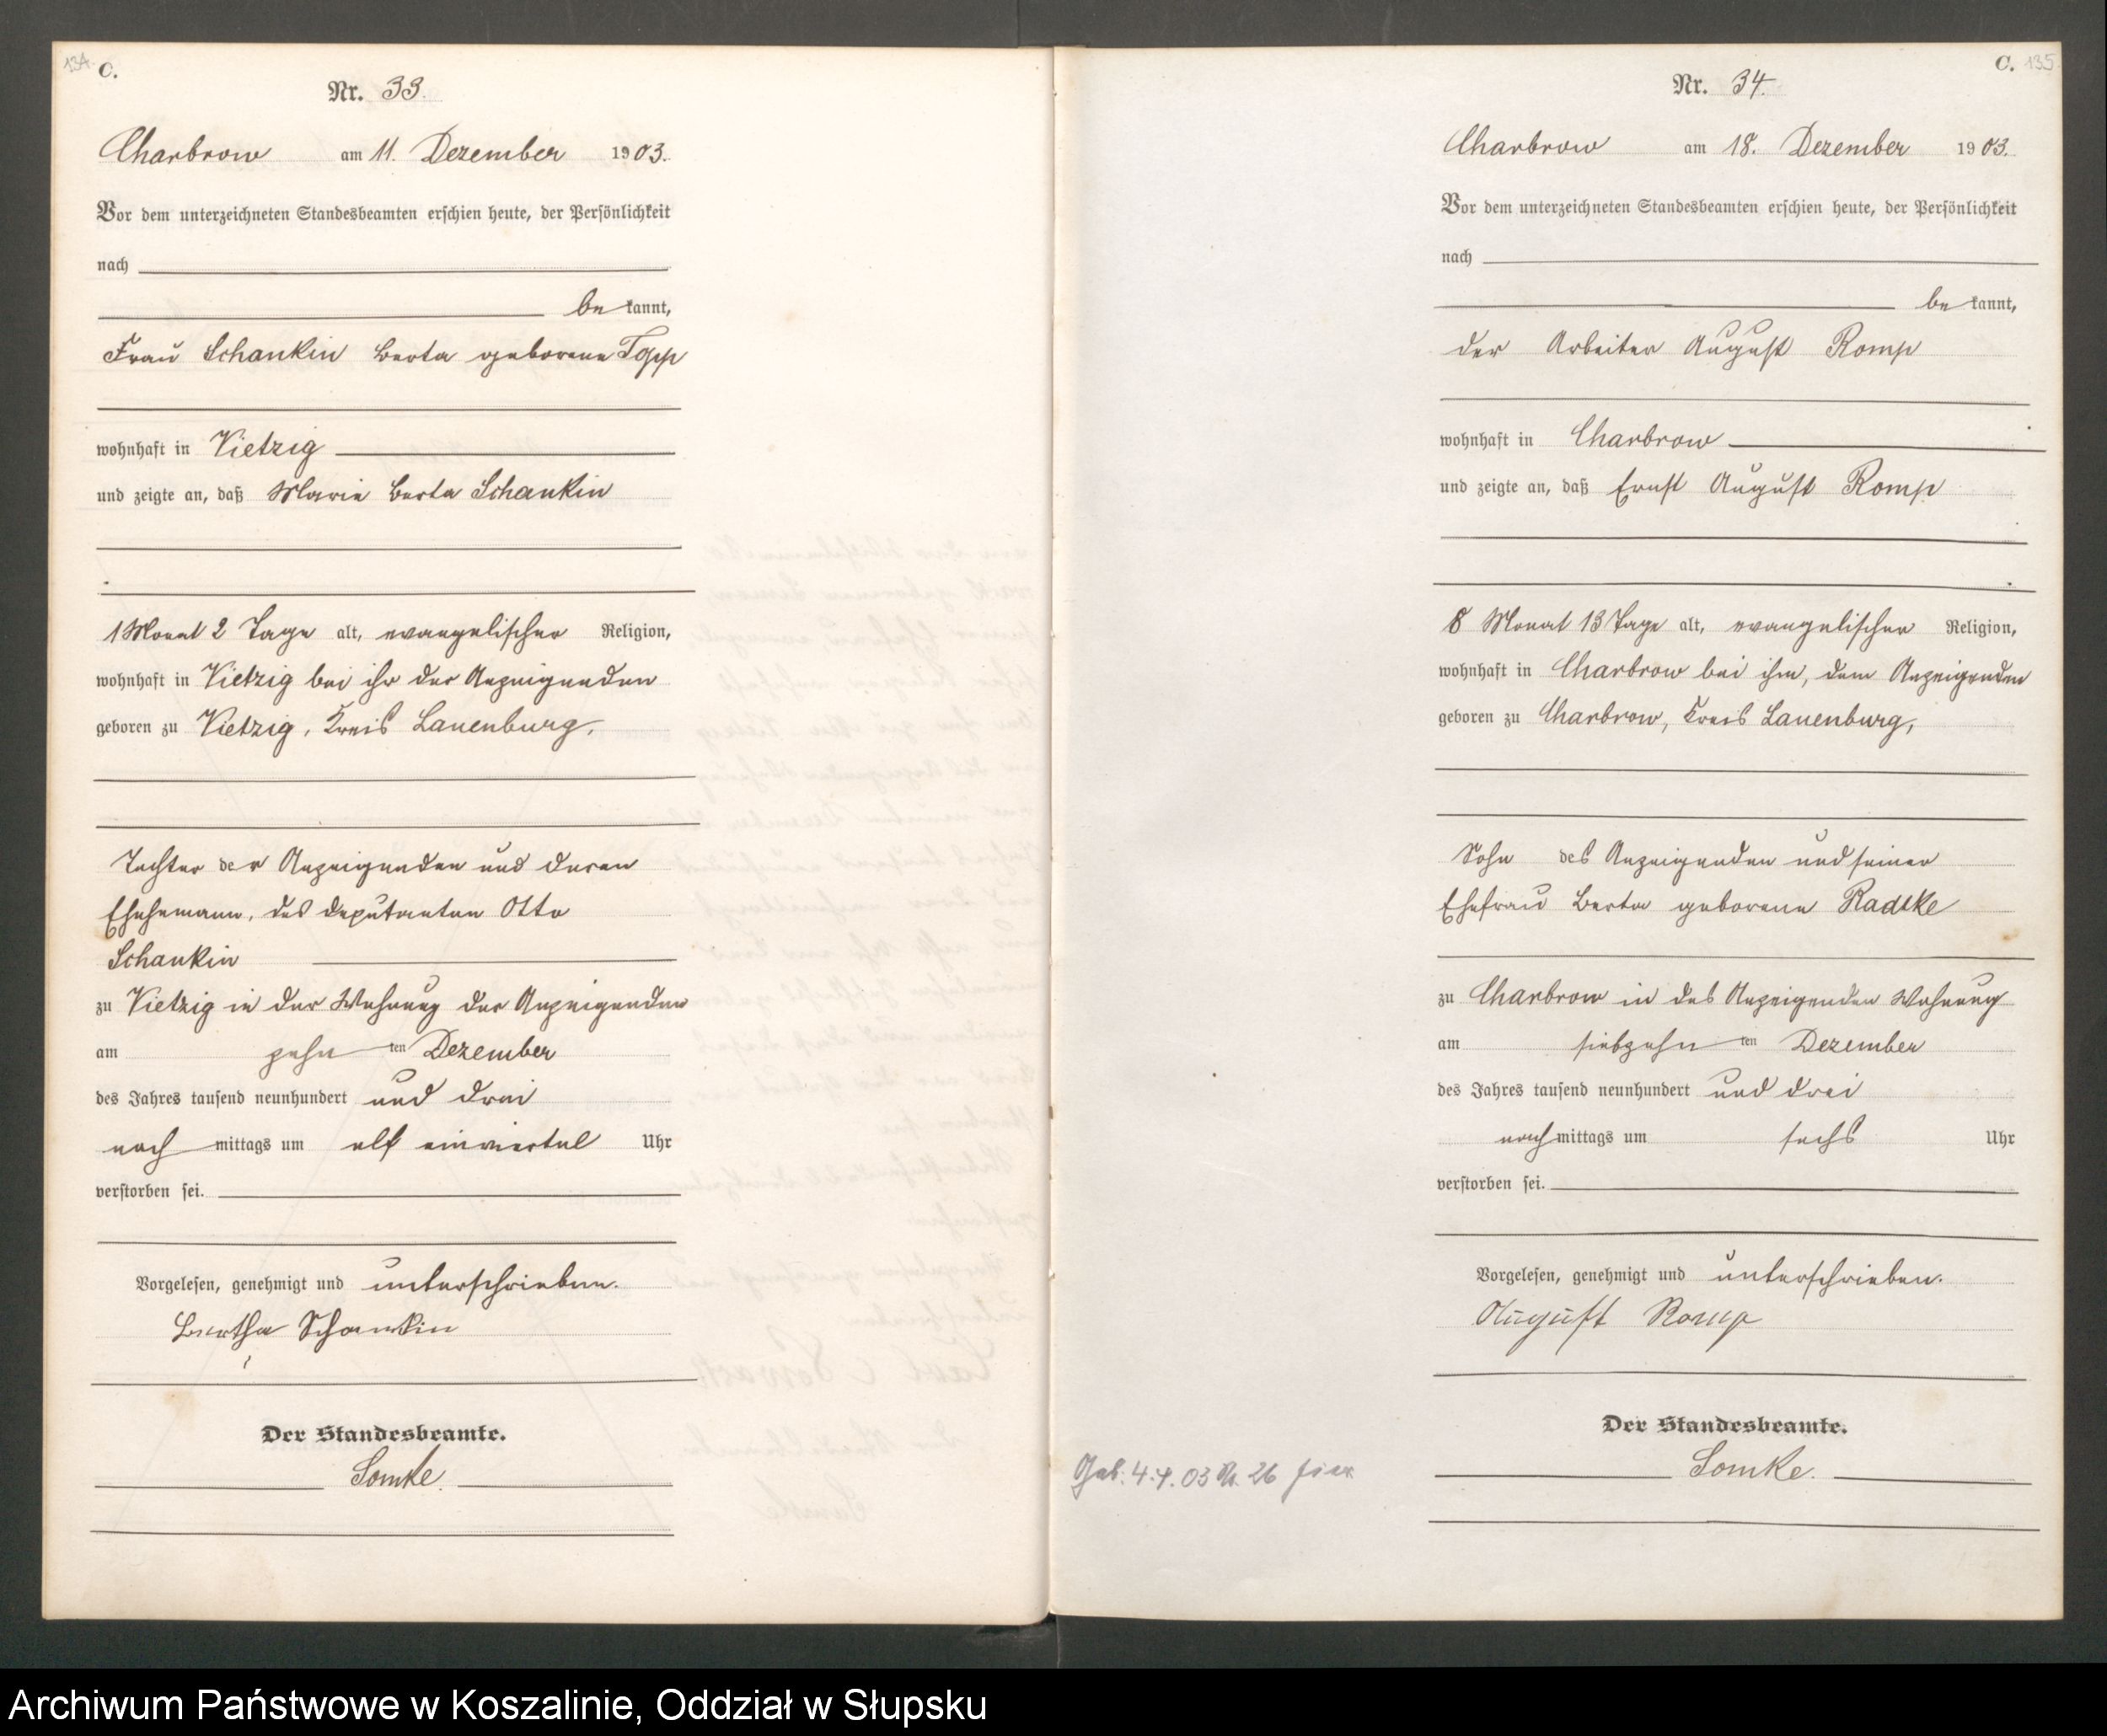 134.
C.
Nr. 33.
Charbrow am 11. Dezember 1903.
Vor dem unterzeichneten Standesbeamten erschien heute, der Persönlichkeit
nach
be kannt,
Frau Schankin Berta geborene Topp
wohnhaft in Vietzig
und zeigte an, daß Marie Berta Schankin
1 Monat 2 Tage alt, evangelischer Religion,
wohnhaft in Vietzig bei ihr der Anzeigenden
geboren zu Vietzig, Kreis Lauenburg,
Tochter der Anzeigenden und deren
Ehehemann, des Deputanten Otto
Schankin
zu Vietzig in der Wohnung der Anzeigenden
am zehn ten Dezember
des Jahres tausend neunhundert und drei
nach mittags um elf einviertel Uhr
verstorben sei.
Vorgelesen, genehmigt und unterschrieben.
Bertha Schankin
Der Standesbeamte.
Lomke.
C. 135
Nr. 34.
Charbrow am 18. Dezember 1903.
Vor dem unterzeichneten Standesbeamten erschien heute, der Persönlichkeit
nach
be kannt,
der Arbeiter August Romp
wohnhaft in Charbrow
und zeigte an, daß Ernst August Romp
8 Monat 13 Tage alt, evangelischer Religion,
wohnhaft in Charbrow bei ihm, dem Anzeigenden
geboren zu Charbrow, Kreis Lauenburg,
Sohn des Anzeigenden und seiner
Ehefrau Berta geborene Radtke
zu Charbrow in des Anzeigenden Wohnung
am siebzehn ten Dezember
des Jahres tausend neunhundert und drei
nach mittags um sechs Uhr
verstorben sei.
Vorgelesen, genehmigt und unterschrieben.
August Romp
Der Standesbeamte.
Lomke.
Geb. 4.4.03 Nr. 26 hier
Archiwum Państwowe w Koszalinie, Oddział w Słupsku